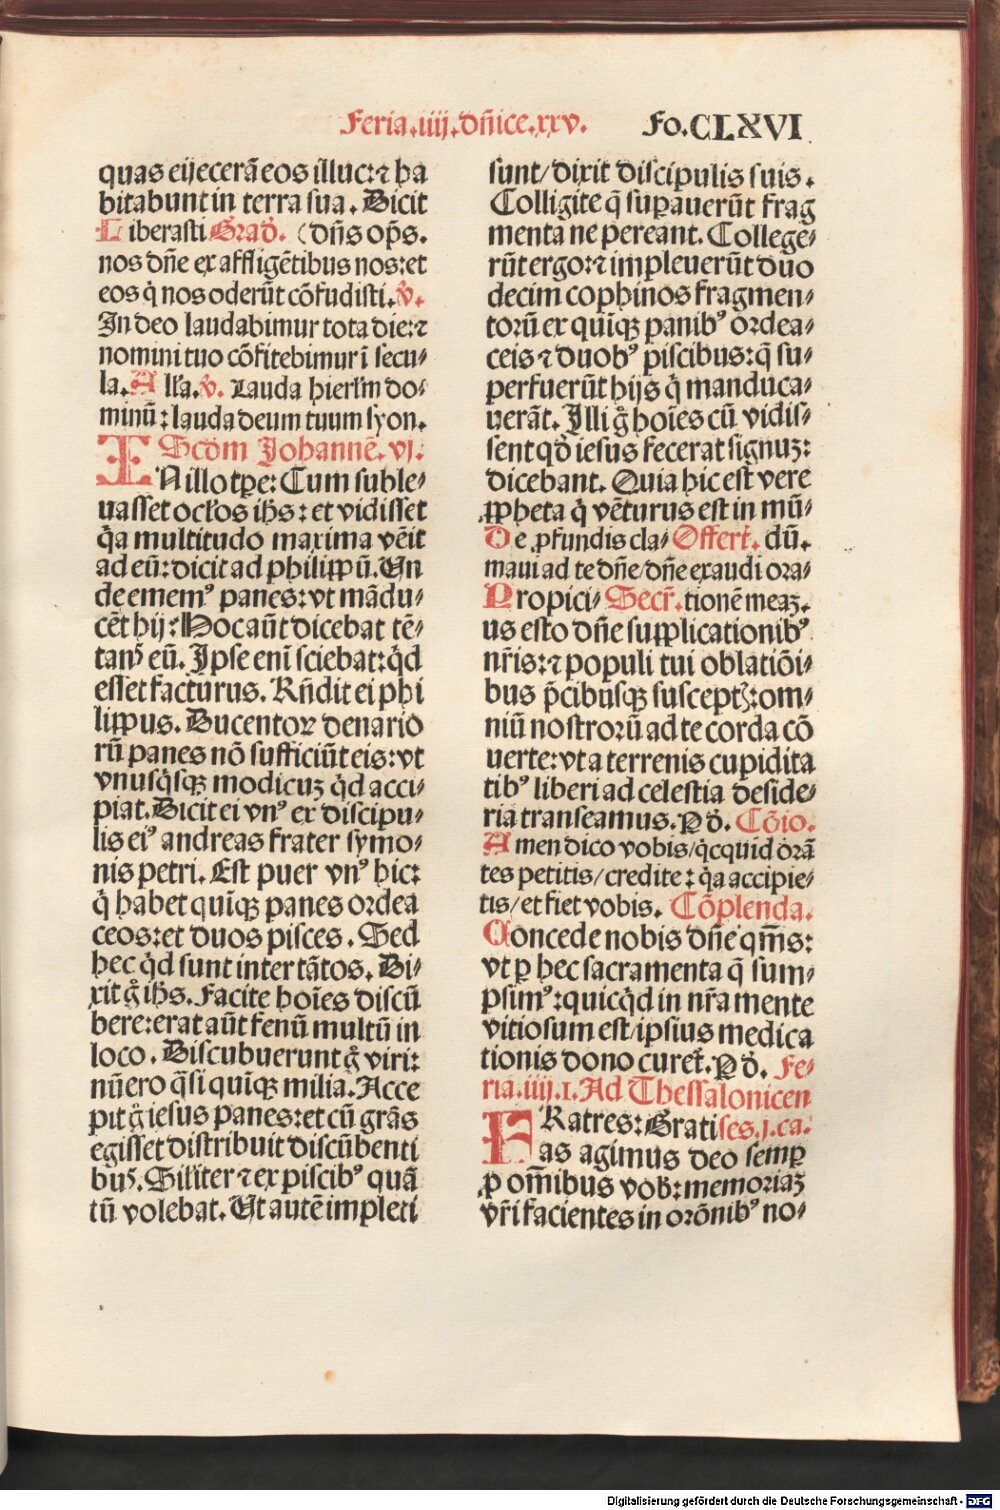 Feria.iiij.dñice.xxv. Fo.CLXVI
quas eijecerā eos illuc:⁊ ha
bitabunt in terra sua. Dicit
Liberasti Grad̄. (dñs op̄s.
nos dñe ex affligētibus nos:et
eos q̇ nos oderūt cōfudisti.v̄.
In deo laudabimur tota die:⁊
nomini tuo cōfitebimur ī secu⸗
la. Alľa.v̄. Lauda hierľm do⸗
minū: lauda deum tuum syon.
Scđm Johannē. vj.
INillo tꝑe: Cum suble⸗
uasset ocľos ihs: et vidisset
q̇a multitudo maxima vēit
ad eū: dicit ad philippū. Un
de ememꝰ panes: vt mādu⸗
cēt hij: Hoc aūt dicebat tē⸗
tanꝰ eū. Ipse eni sciebat: qđ
esset facturus. Rñdit ei phi
lippus. Ducentoꝝ denario
rū panes nō sufficiūt eis: vt
vnusq̇sqꝫ modicuꝫ qđ acci⸗
piat. Dicit ei vnꝰ ex discipu⸗
lis eiꝰ andreas frater symo⸗
nis petri. Est puer vnꝰ hic:
q̇ habet quīqꝫ panes ordea
ceos: et duos pisces. Sed
hec qđ sunt inter tātos. Di⸗
xit g̊ ihs. Facite hoīes discū
bere: erat aūt fenū multū in
loco. Discubuerunt g̊ viri:
nūero q̄si quīqꝫ milia. Acce
pit g̊ iesus panes: et cū grās
egisset distribuit discūbenti
bus. Siľiter ⁊ ex piscibꝰ quā
tū volebat. Ut autē impleti
sunt/ dixit discipulis suis.
Colligite q̄ suꝑauerūt frag
menta ne pereant. College⸗
rūt ergo: ⁊ impleuerūt duo
decim cophinos fragmen⸗
torū ex quīqꝫ panibꝰ ordea⸗
ceis ⁊ duobꝰ piscibus: q̄ su⸗
perfuerūt hijs q̇ manduca⸗
uerāt. Illi g̊ hoīes cū vidis⸗
sent qđ iesus fecerat signuꝫ:
dicebant. Quia hic est vere
ꝓpheta q̇ vēturus est in mū⸗
De ꝓfundis cla⸗ Offert̄. dū.
maui ad te dñe/ dñe exaudi ora⸗
Propici⸗ Secr̄. tionē meaꝫ.
us esto dñe supplicationibꝰ
nr̄is: ⁊ populi tui oblatiōi⸗
bus p̄cibusqꝫ susceptꝭ: om⸗
niū nostrorū ad te corda cō
uerte: vt a terrenis cupidita
tibꝰ liberi ad celestia deside⸗
ria transeamus. P đ. Cōio.
Amen dico vobis/ q̇cquid orā
tes petitis/ credite: q̇a accipie⸗
tis/ et fiet vobis. Cōplenda.
Concede nobis dñe qm̄s:
vt ꝑ hec sacramenta q̄ sum⸗
psimꝰ: quicqđ in nr̄a mente
vitiosum est/ ipsius medica
tionis dono curet̄. P đ. Fe⸗
ria.iiij.1. Ad Thessalonicen
FRatres: Grati ses.j.ca.
as agimus deo semꝑ
ꝓ om̄ibus vob̄: memoriaꝫ
vr̄i facientes in orōnibꝰ no⸗
Digitalisierung gefördert durch die Deutsche Forschungsgemeinschaft - DFG